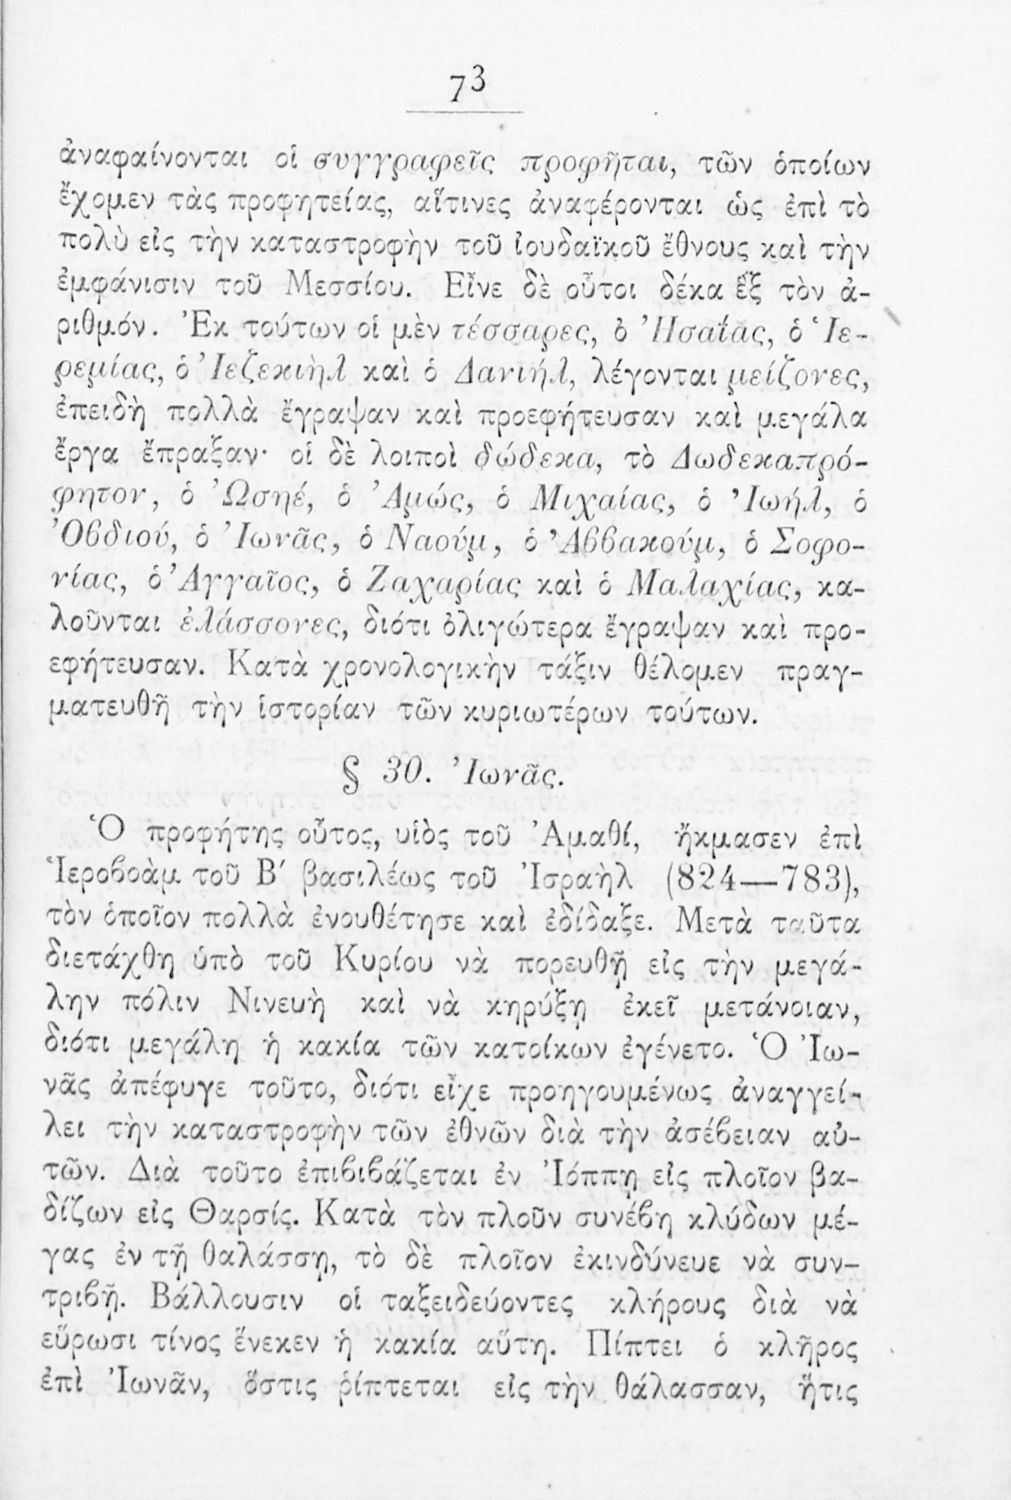 73
ἀναφαίνονται οἱ συγγραφεῖς προφῆται, τῶν ὁποίων
ἔχομεν τὰς προφητείας, αἵτινες ἀναφέρονται ὡς ἐπὶ τὸ
πολὺ εἰς τὴν καταστροφὴν τοῦ ἰουδαϊκοῦ ἔθνους καὶ τὴν
ἐμφάνισιν τοῦ Μεσσίου. Εἶνε δὲ οὗτοι δέκα ἓξ τὸν ἀ-
ριθμόν. Ἐκ τούτων οἱ μὲν τέσσαρες, ὁ Ἠσαΐας, ὁ Ἱε-
ρεμίας, ὁ Ἰεζεκιὴλ καὶ ὁ Δανιήλ, λέγονται μείζονες,
ἐπειδὴ πολλὰ ἔγραψαν καὶ προεφήτευσαν καὶ μεγάλα
ἔργα ἔπραξαν· οἱ δὲ λοιποὶ δώδεκα, τὸ Δωδεκαπρό-
φητον, ὁ Ὠσηέ, ὁ Ἀμώς, ὁ Μιχαίας, ὁ Ἰωήλ, ὁ
Ὀβδιού, ὁ Ἰωνᾶς, ὁ Ναούμ, ὁ Ἀββακούμ, ὁ Σοφο-
νίας, ὁ Ἀγγαῖος, ὁ Ζαχαρίας καὶ ὁ Μαλαχίας, κα-
λοῦνται ἐλάσσονες, διότι ὀλιγώτερα ἔγραψαν καὶ προ-
εφήτευσαν. Κατὰ χρονολογικὴν τάξιν θέλομεν πραγ-
ματευθῆ τὴν ἱστορίαν τῶν κυριωτέρων τούτων.
§ 30. Ἰωνᾶς.
Ὁ προφήτης οὗτος, υἱὸς τοῦ Ἀμαθί, ἤκμασεν ἐπὶ
Ἱεροβοὰμ τοῦ Β′ βασιλέως τοῦ Ἰσραὴλ (824—783),
τὸν ὁποῖον πολλὰ ἐνουθέτησε καὶ ἐδίδαξε. Μετὰ ταῦτα
διετάχθη ὑπὸ τοῦ Κυρίου νὰ πορευθῇ εἰς τὴν μεγά-
λην πόλιν Νινευὴ καὶ νὰ κηρύξῃ ἐκεῖ μετάνοιαν,
διότι μεγάλη ἡ κακία τῶν κατοίκων ἐγένετο. Ὁ Ἰω-
νᾶς ἀπέφυγε τοῦτο, διότι εἶχε προηγουμένως ἀναγγεί-
λει τὴν καταστροφὴν τῶν ἐθνῶν διὰ τὴν ἀσέβειαν αὐ-
τῶν. Διὰ τοῦτο ἐπιβιβάζεται ἐν Ἰόππῃ εἰς πλοῖον βα-
δίζων εἰς Θαρσίς. Κατὰ τὸν πλοῦν συνέβη κλύδων μέ-
γας ἐν τῇ θαλάσσῃ, τὸ δὲ πλοῖον ἐκινδύνευε νὰ συν-
τριβῇ. Βάλλουσιν οἱ ταξειδεύοντες κλήρους διὰ νὰ
εὕρωσι τίνος ἕνεκεν ἡ κακία αὕτη. Πίπτει ὁ κλῆρος
ἐπὶ Ἰωνᾶν, ὅστις ῥίπτεται εἰς τὴν θάλασσαν, ἥτις